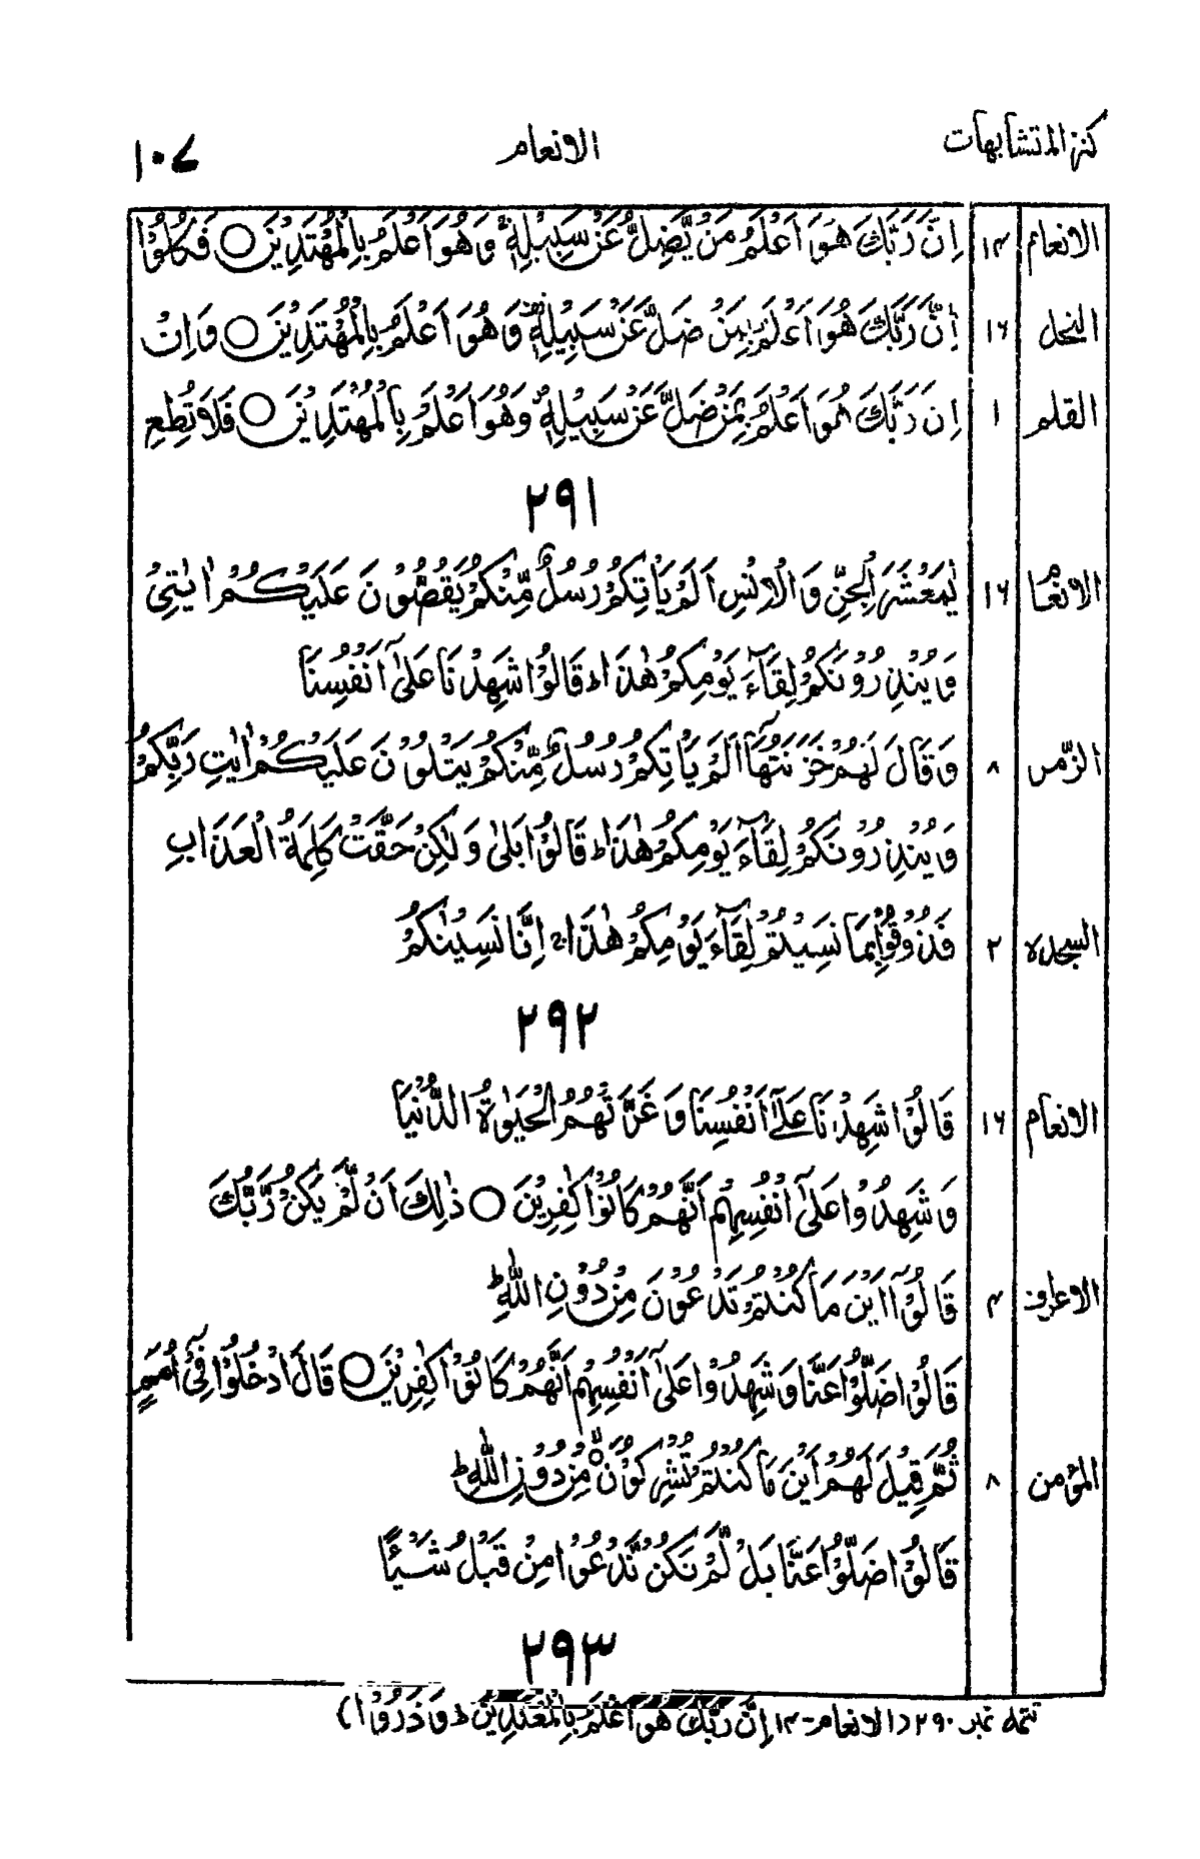 كنز المتشابهات الانعام ١٠٧
الانعام ١٤ اِنَّ رَبَّكَ هُوَ اَعْلَمُ مَنْ يَّضِلُّ عَنْ سَبِيْلِهٖ ۚ وَهُوَ اَعْلَمُ بِالْمُهْتَدِيْنَ ○ فَكُلُوْا
النحل ١٦ اِنَّ رَبَّكَ هُوَ اَعْلَمُ بِمَنْ ضَلَّ عَنْ سَبِيْلِهٖ وَهُوَ اَعْلَمُ بِالْمُهْتَدِيْنَ ○ وَاِنْ
القلم ١ اِنَّ رَبَّكَ هُوَ اَعْلَمُ بِمَنْ ضَلَّ عَنْ سَبِيْلِهٖ وَهُوَ اَعْلَمُ بِالْمُهْتَدِيْنَ ○ فَلَا تُطِعِ
٢٩١
الانعا ١٦ يٰمَعْشَرَ الْجِنِّ وَالْاِنْسِ اَلَمْ يَاْتِكُمْ رُسُلٌ مِّنْكُمْ يَقُصُّوْنَ عَلَيْكُمْ اٰيٰتِيْ
وَيُنْذِرُوْنَكُمْ لِقَآءَ يَوْمِكُمْ هٰذَا ؕ قَالُوْا شَهِدْنَا عَلٰٓى اَنْفُسِنَا
الزّمر ٨ وَقَالَ لَهُمْ خَزَنَتُهَآ اَلَمْ يَاْتِكُمْ رُسُلٌ مِّنْكُمْ يَتْلُوْنَ عَلَيْكُمْ اٰيٰتِ رَبِّكُمْ
وَيُنْذِرُوْنَكُمْ لِقَآءَ يَوْمِكُمْ هٰذَا ؕ قَالُوْا بَلٰى وَلٰكِنْ حَقَّتْ كَلِمَةُ الْعَذَابِ
السجدة ٢ فَذُوْقُوْا بِمَا نَسِيْتُمْ لِقَآءَ يَوْمِكُمْ هٰذَا ۚ اِنَّا نَسِيْنٰكُمْ
٢٩٢
الانعام ١٦ قَالُوْا شَهِدْنَا عَلٰٓى اَنْفُسِنَا وَغَرَّتْهُمُ الْحَيٰوةُ الدُّنْيَا
وَشَهِدُوْا عَلٰٓى اَنْفُسِهِمْ اَنَّهُمْ كَانُوْا كٰفِرِيْنَ ○ ذٰلِكَ اَنْ لَّمْ يَكُنْ رَّبُّكَ
الاعراف ٤ قَالُوْٓا اَيْنَ مَا كُنْتُمْ تَدْعُوْنَ مِنْ دُوْنِ اللّٰهِ ؕ
قَالُوْا ضَلُّوْا عَنَّا وَشَهِدُوْا عَلٰٓى اَنْفُسِهِمْ اَنَّهُمْ كَانُوْا كٰفِرِيْنَ ○ قَالَ ادْخُلُوْا فِيْٓ اُمَمٍ
المؤمن ٨ ثُمَّ قِيْلَ لَهُمْ اَيْنَ مَا كُنْتُمْ تُشْرِكُوْنَ ۙ مِنْ دُوْنِ اللّٰهِ ؕ
قَالُوْا ضَلُّوْا عَنَّا بَلْ لَّمْ نَكُنْ نَّدْعُوْا مِنْ قَبْلُ شَيْئًا
٢٩٣
تتمہ نمبر ٢٩٠ (الانعام-١٤ اِنَّ رَبَّكَ هُوَ اَعْلَمُ بِالْمُعْتَدِيْنَ ؕ وَذَرُوْا)